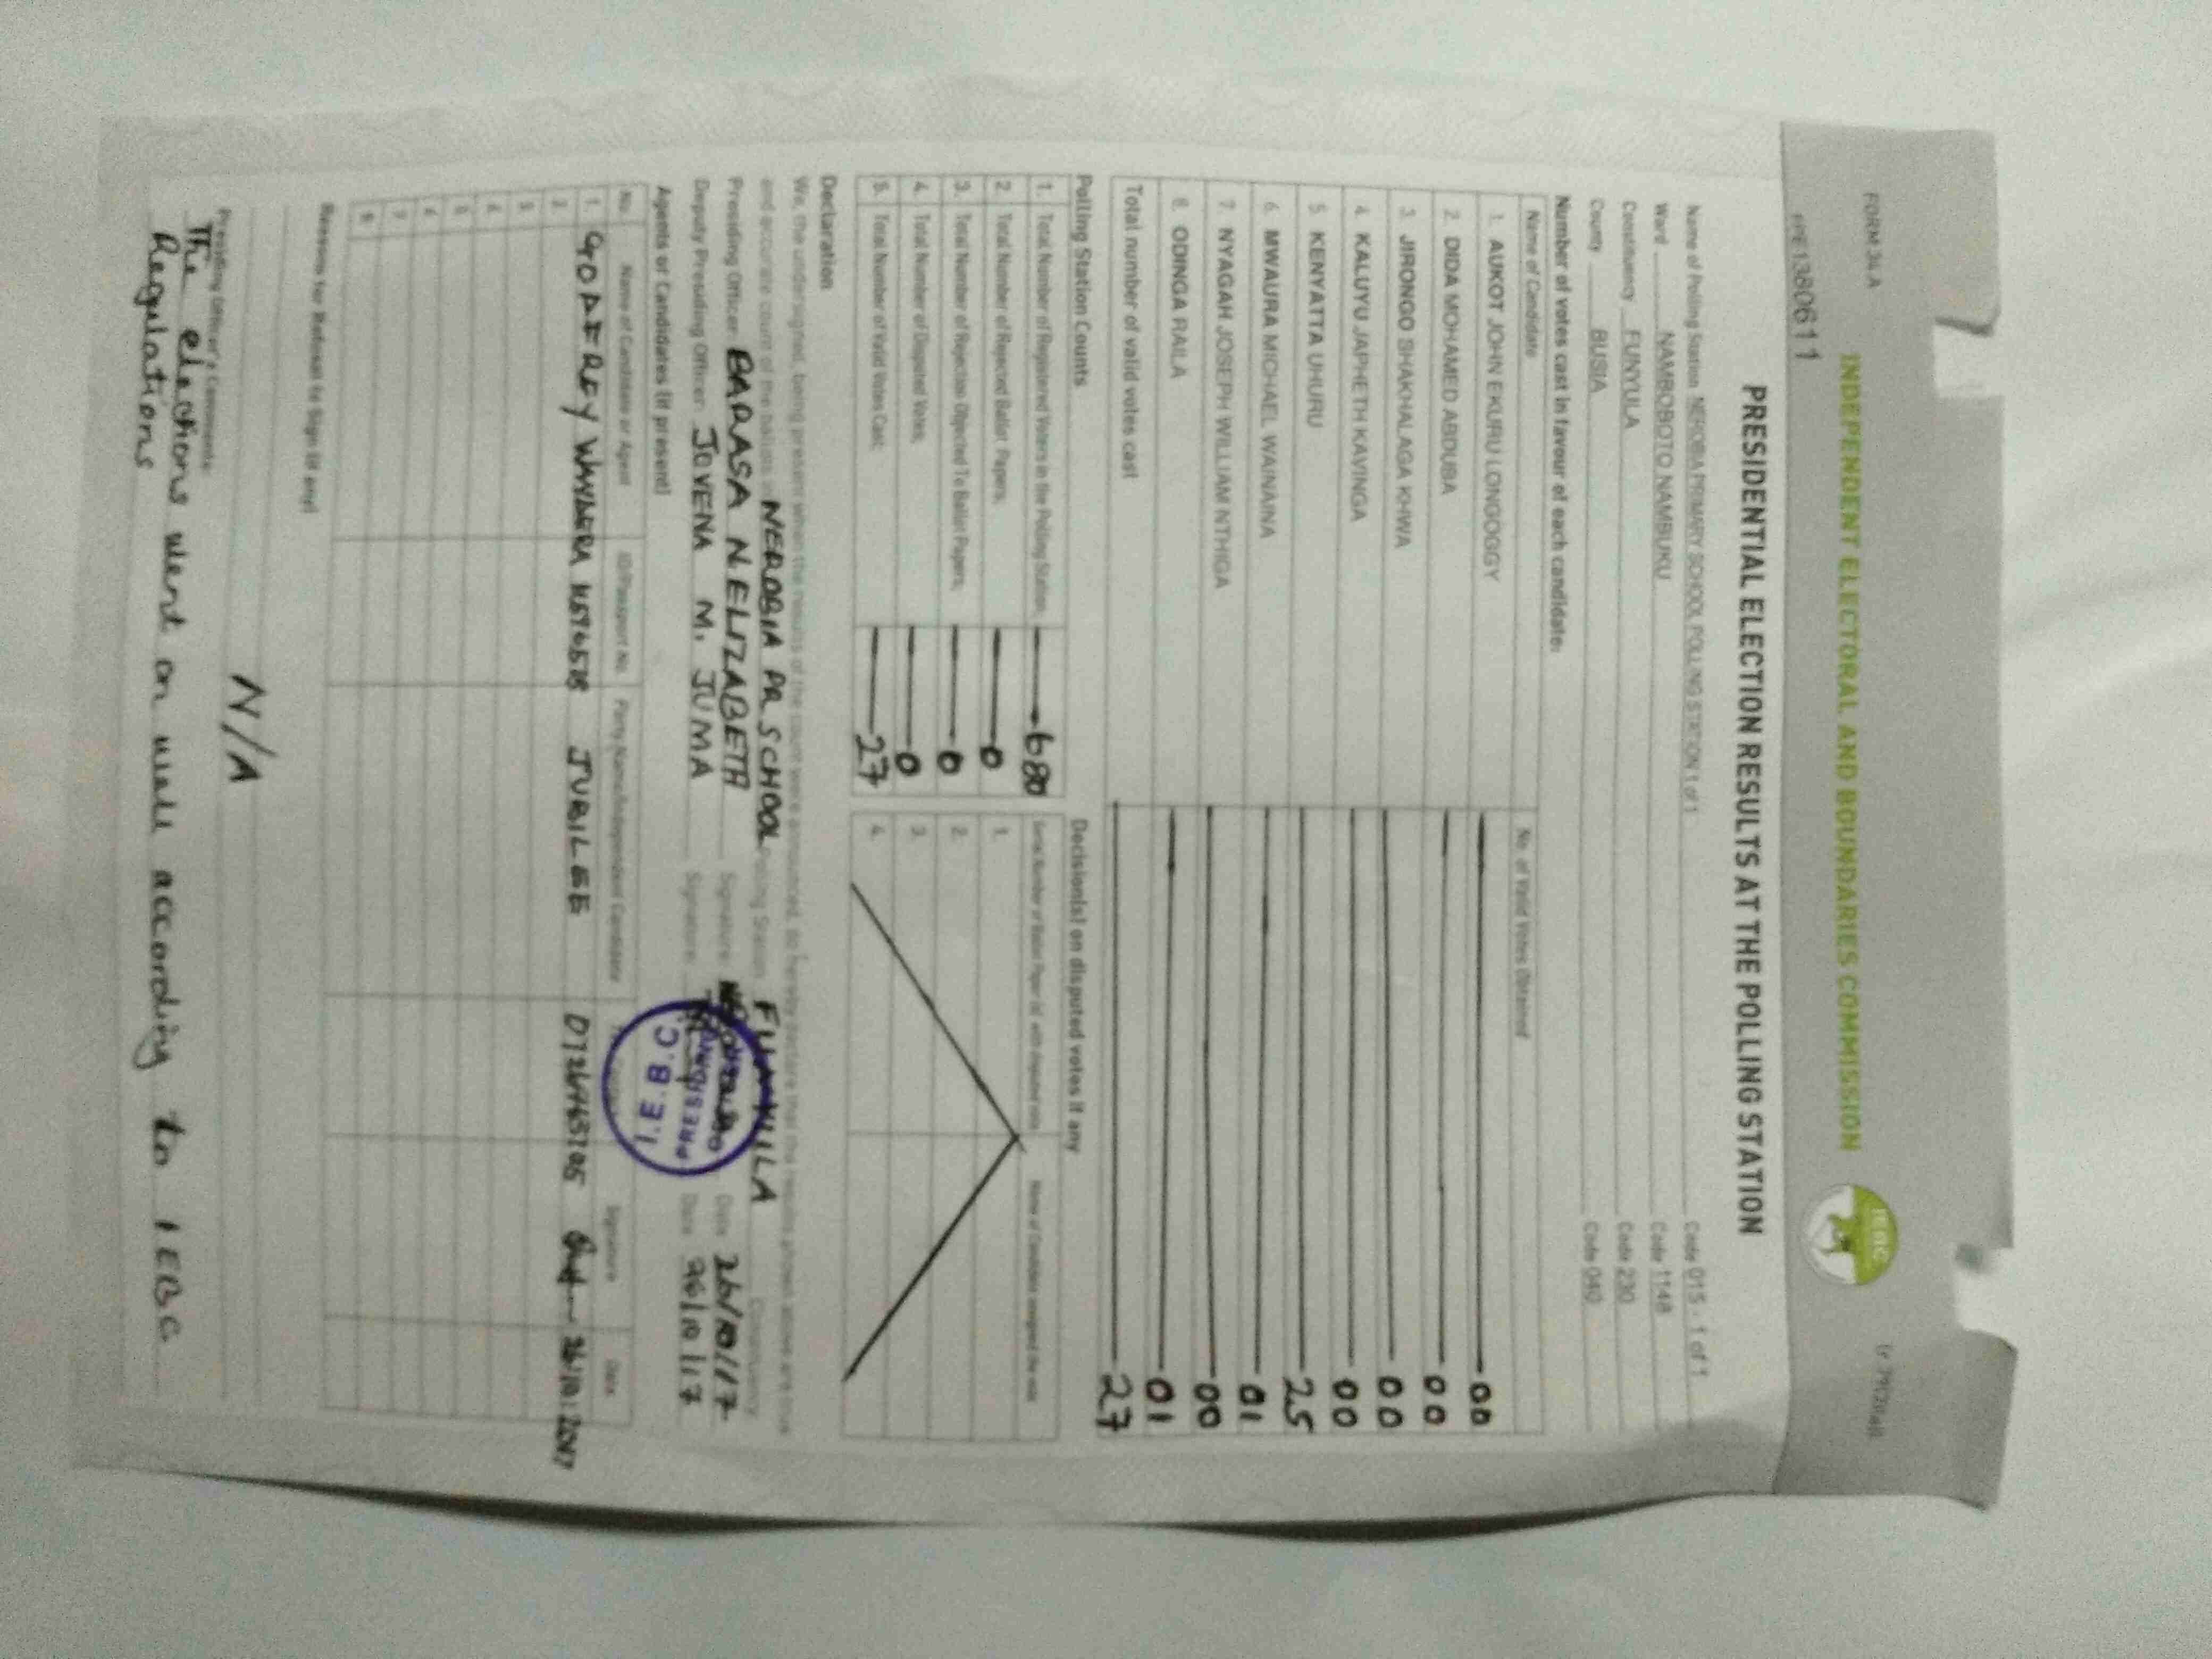 FORM 34 A
INDEPENDENT ELECTORAL AND BOUNDARIES COMMISSION
IEBC
PRESIDENTIAL ELECTION RESULTS AT THE POLLING STATION
Name of Polling Station NEROBIA PRIMARY SCHOOL POLLING STATION 1 of 1 Code 015 - 1 of 1
Ward NAMBOBOTO NAMBUKU Code 1148
Constituency FUNYULA Code 230
County BUSIA Code 040
Number of votes cast in favour of each candidate:
Name of Candidate No. of Valid Votes Obtained
1. AUKOT JOHN EKURU LONGOGGY 00
2. DIDA MOHAMED ABDUBA 00
3. JIRONGO SHAKHALAGA KHWA 00
4. KALUYU JAPHETH KAVINGA 00
5. KENYATTA UHURU 25
6. MWAURA MICHAEL WAINAINA 01
7. NYAGAH JOSEPH WILLIAM NTHIGA 00
8. ODINGA RAILA 01
Total number of valid votes cast 27
Polling Station Counts
1. Total Number of Registered Voters in the Polling Station; 680
2. Total Number of Rejected Ballot Papers; 0
3. Total Number of Rejection Objected To Ballot Papers; 0
4. Total Number of Disputed Votes; 0
5. Total Number of Valid Votes Cast; 27
Decision(s) on disputed votes if any
1.
2.
3.
4.
Declaration
We, the undersigned, being present when the results of the count were announced, do hereby declare that the results shown above are true
and accurate count of the ballots in NEROBIA PR SCHOOL Polling Station Constituency
Presiding Officer: BARASA NELIZABETH Signature: Date 26/10/17
Deputy Presiding Officer: JOVENA M. JUMA Signature: Date 26/10/17
I.E.B.C
PRESIDING
Agents or Candidates (if present)
No. Name of Candidate or Agent ID/Passport No. Party Name/Independent Candidate Signature Date
1. JUBILEE 26/10/2017
2.
3.
4.
5.
6.
7.
8.
Reasons for Refusal to Sign (if any)
N/A
Presiding Officer's Comments:
The elections went on well according to IEBC
Regulations